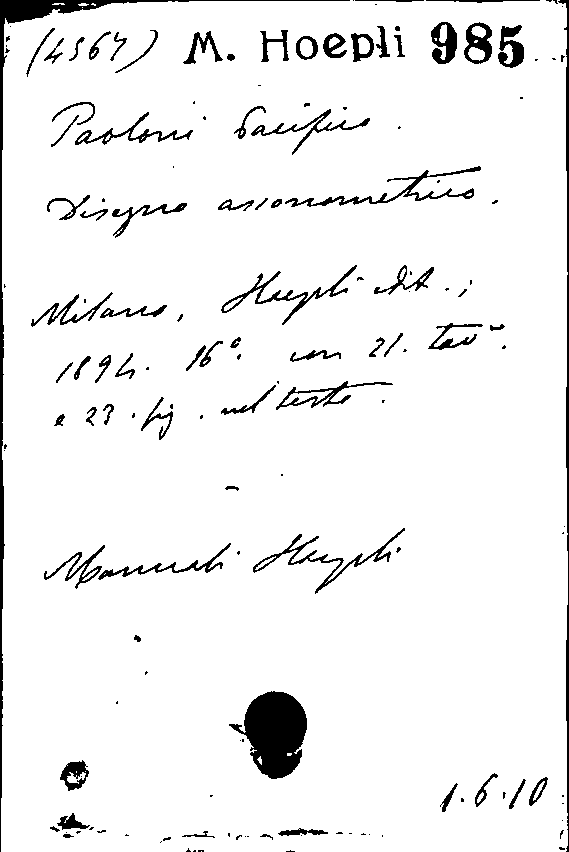 (4564) M. Hoepli 985
Paoloni Pacifico.
Disegno assonometrico.
Milano, Hoepli edit.;
1894. 16°. con 21. tav.
e 23. fig. nel testo.
Manuali Hoepli
1.6.10